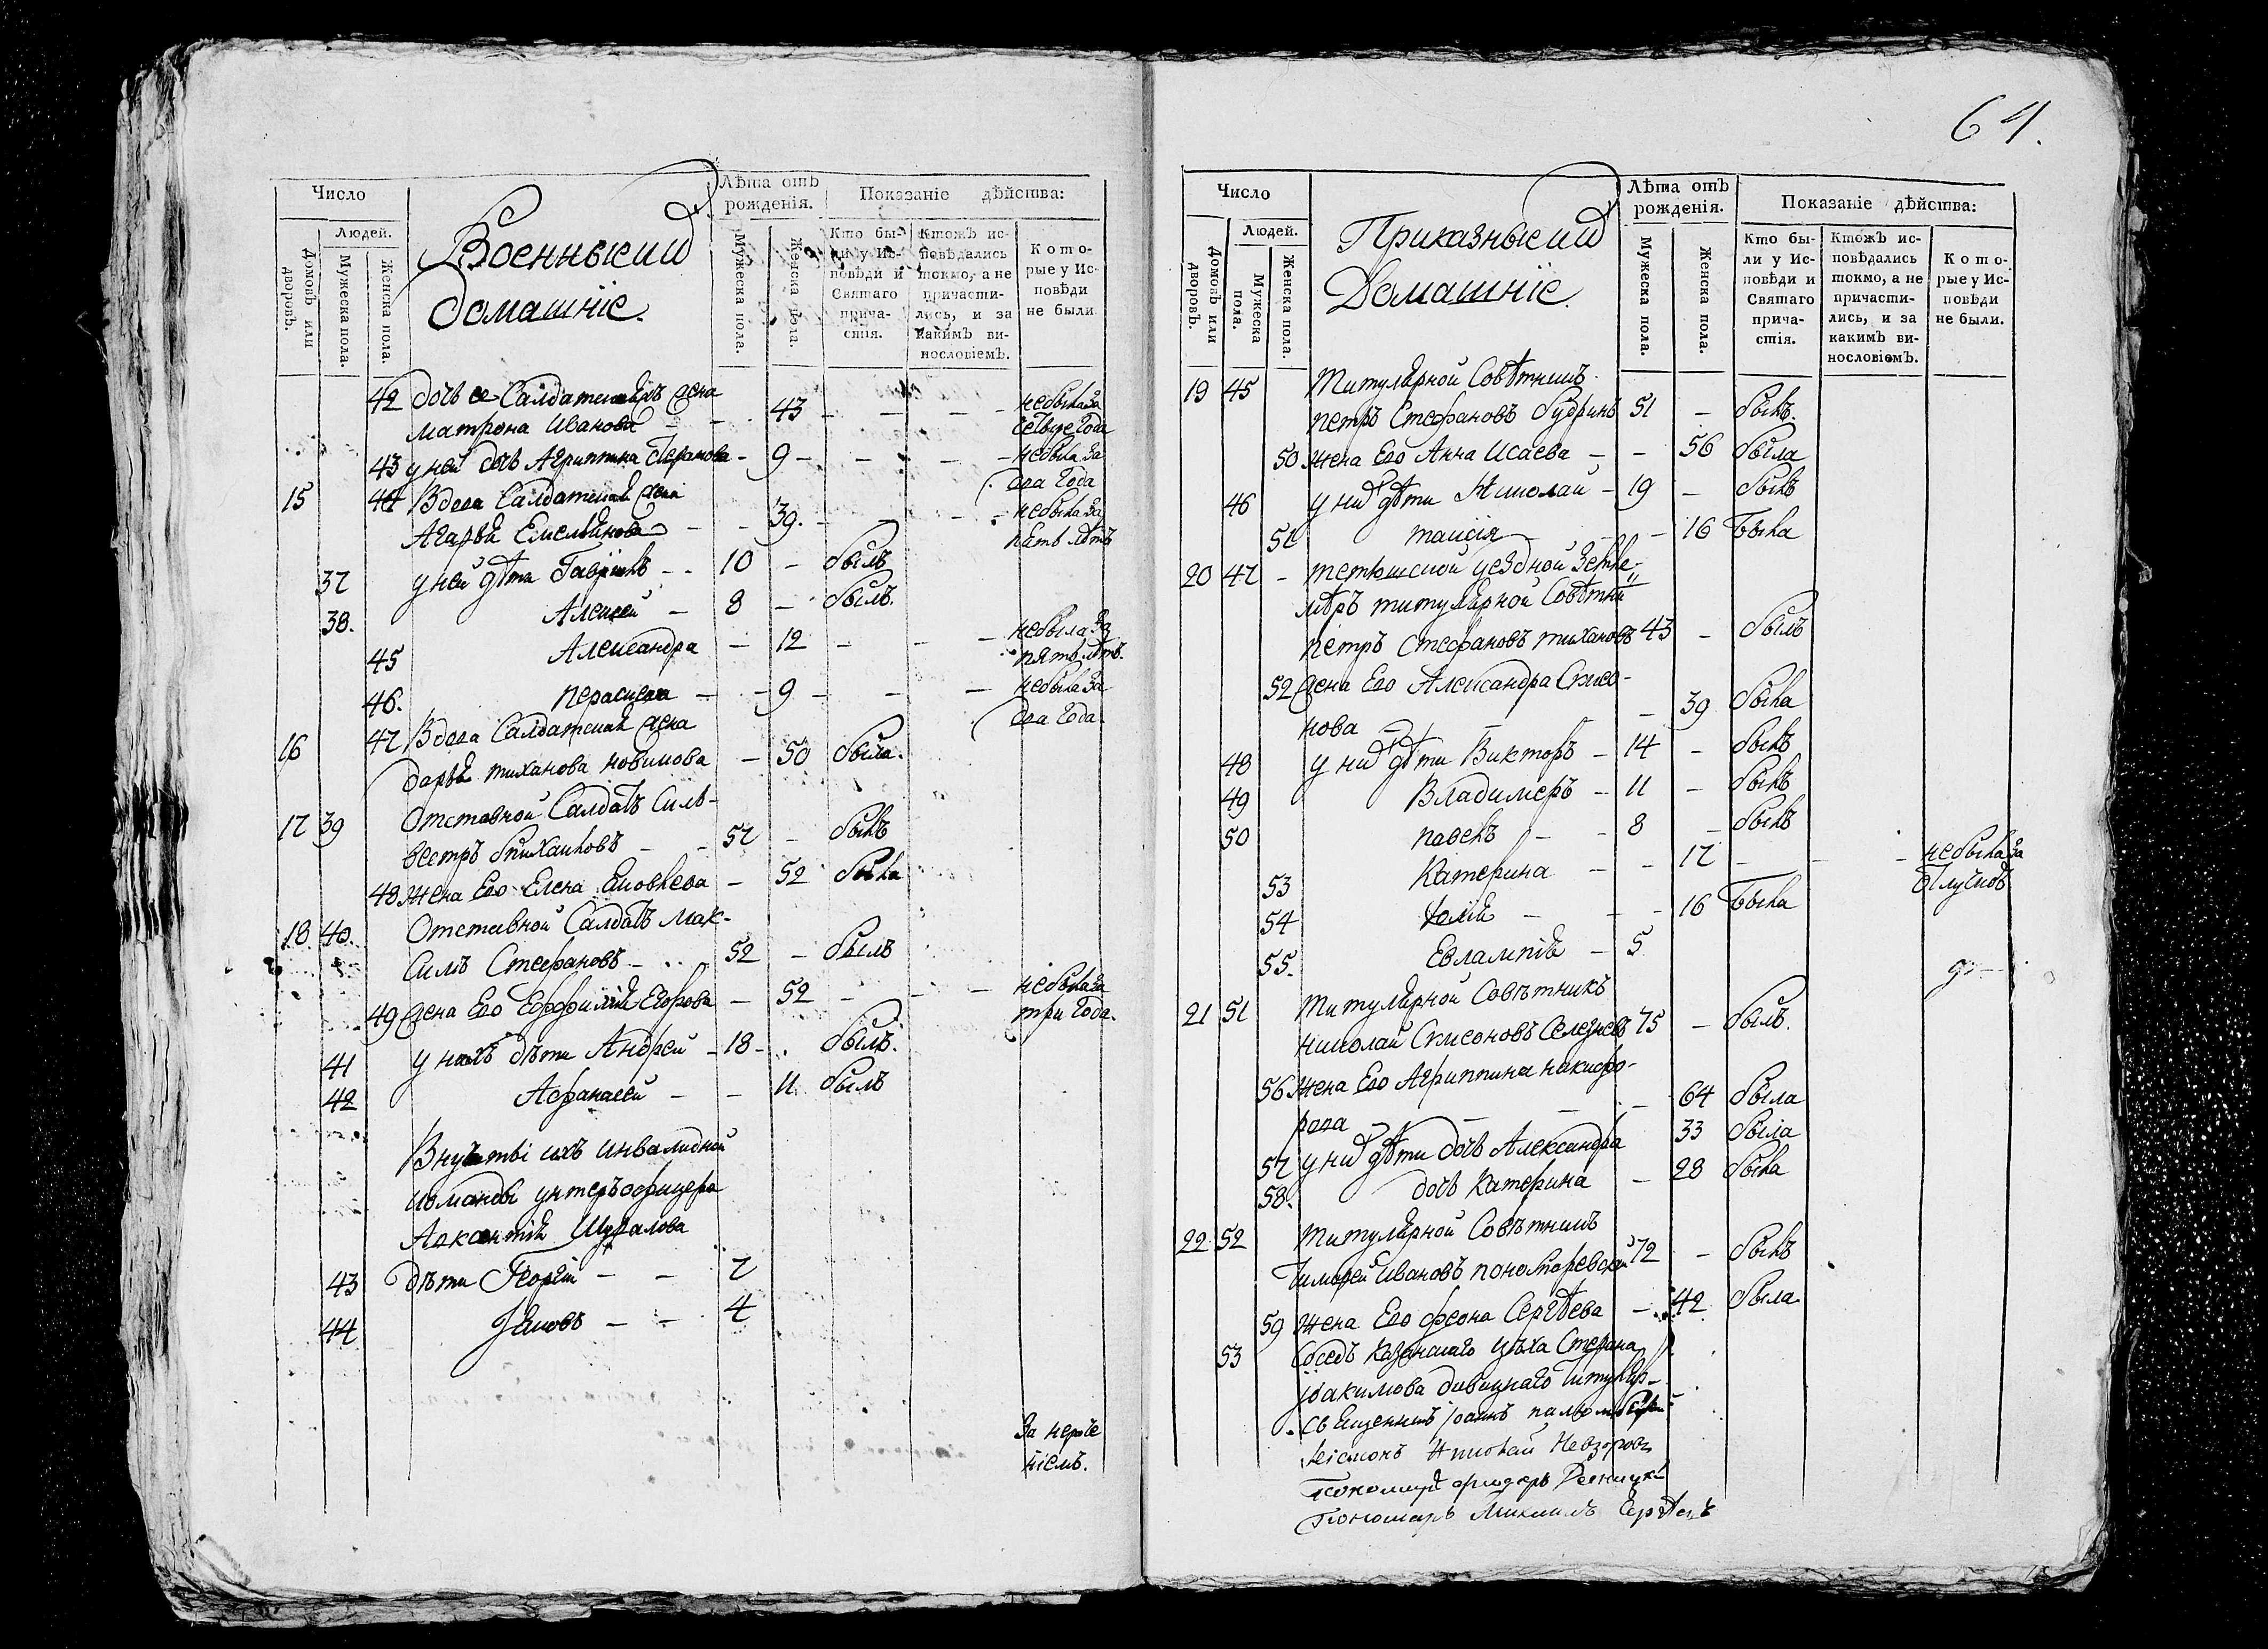 Число
Лѣта отъ рожденія.
Показаніе дѣйства:
Людей.
Домовъ или дворовъ.
Мужеска пола.
Женска пола.
Военныеи
домашніе.
Мужеска пола.
Женска пола.
Кто были у Исповѣди и Святаго причастія.
Ктожъ исповѣдались токмо, а не причастились, и за какимъ винословіемъ.
Которые у Исповѣди не были
42 дочь ея Салдатская жена
Матрона Иванова - - 43 - - - небыла за
года
43 у ней дочь Агрипина Стефанова - 9 - - - небыла за
два года
15 44 Вдова Салдатская жена
Агафья Емельянова - - 39. - - - небыла за
пять лѣтъ
37 у ней дѣти Гаврiилъ - - 10 - былъ
38. Алексей - 8 - былъ.
45 Александра - 12 - - - небыла за
пять лѣтъ.
46. Параскева - - 9 - - - небыла за
два года
16 47 Вдова Салдатская жена
дарья тиханова новикова - 50 была.
17 39 Отставной Салдатъ Силь-
вестръ - - 57 - былъ
48 жена Его Елена Яковлева - 52 была
18. 40. Отставной Салдатъ Мак-
симъ Стефановъ - . . 52 - былъ
49 жена Его Евфимия Егорова - 52 - - - небыла за
три года.
41 у нихъ дѣти Андрей - 18 - . былъ.
42 Афанасей - - 11 былъ
инвалидной
команды унтеръ офицера
Авксентия Шувалова
43 дѣти Георгiй - - 7
44 Яковъ - - 4
За
нiемъ.
64.
Число
Лѣта отъ рожденія.
Показаніе дѣйства:
Людей.
Домовъ или дворовъ.
Мужеска пола.
Женска пола.
Приказныеи
Домашніе.
Мужеска пола.
Женска пола.
Кто были у Исповѣди и Святаго причастія.
Ктожъ исповѣдались токмо, а не причастились, и за какимъ винословіемъ.
Которые у Исповѣди не были.
19 45 Титулярной Совѣтникъ
петръ Стефановъ Кудринъ 51 - былъ.
50 жена Его Анна Исаева - - 56 была
46 у них дѣти Николай - 19 - былъ
51 таисiя - - 16 была
20 47 - тетюшской уездной Земле-
мѣръ титулярной Совѣтни
петръ Стефановъ тихановъ 43 - былъ
52 жена Его Александра Симео-
нова - - - 39 была
48 у них дѣти Викторъ - 14 - былъ
49 Владимеръ - 11 - былъ
50 павелъ - - 8 - былъ
53 Катерина - - 17 - - - небыла за
отлучкой
54 Юлiя - - - 16 была
55. Евлампiя - 5
21 51 Титулярной Совѣтникъ
Николай Симеоновъ Селезневъ 75 - былъ.
56 жена Его Агрипина никифо-
рова - - - 64 была
57 у них дѣти дочь Александра 33 была
58. дочь Катерина - 28 была
22 52 Титулярной Совѣтникъ
Тимофей Ивановъ пономаревской 72 - былъ
59 жена Его феона Сергѣева - 42 была
53 Казанскаго цѣха Стефана
iоакимова
священникъ iоаннъ
Николай Невзоровъ
Пономарь Михаилъ Сергѣевъ